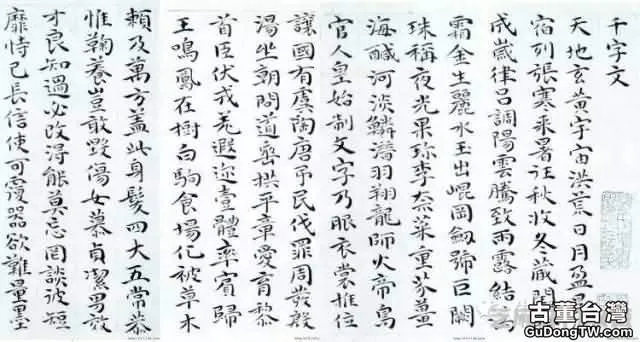 千字文
天地玄黃宇宙洪荒日月盈昃
宿列張寒來暑往秋收冬藏閏
成歲律呂調陽雲騰致雨露結為
霜金生麗水玉出崐岡劒號巨闕
珠稱夜光果珍李柰菜重芥薑
海鹹河淡鱗潛羽翔龍師火帝鳥
官人皇始制文字乃服衣裳推位
讓國有虞陶唐弔民伐罪周發殷
湯坐朝問道垂拱平章愛育黎
首臣伏戎羌遐邇壹體率賓歸
王鳴鳳在樹白駒食場化被草木
賴及萬方蓋此身髮四大五常恭
惟鞠養豈敢毀傷女慕貞潔男效
才良知過必改得能莫忘罔談彼短
靡恃己長信使可覆器欲難量墨
古董台灣
GuDongTW.com